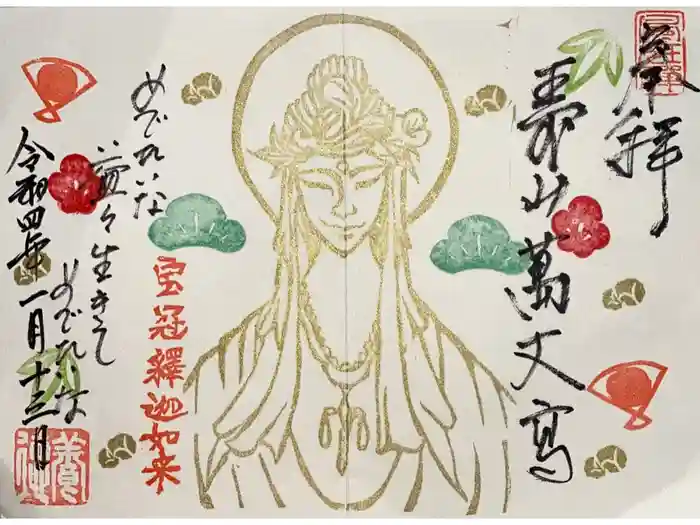 奉拝
壽山萬丈高
めでたいな
益々生きて
めでたいな
宝冠釋迦如来
令和四年一月十三日